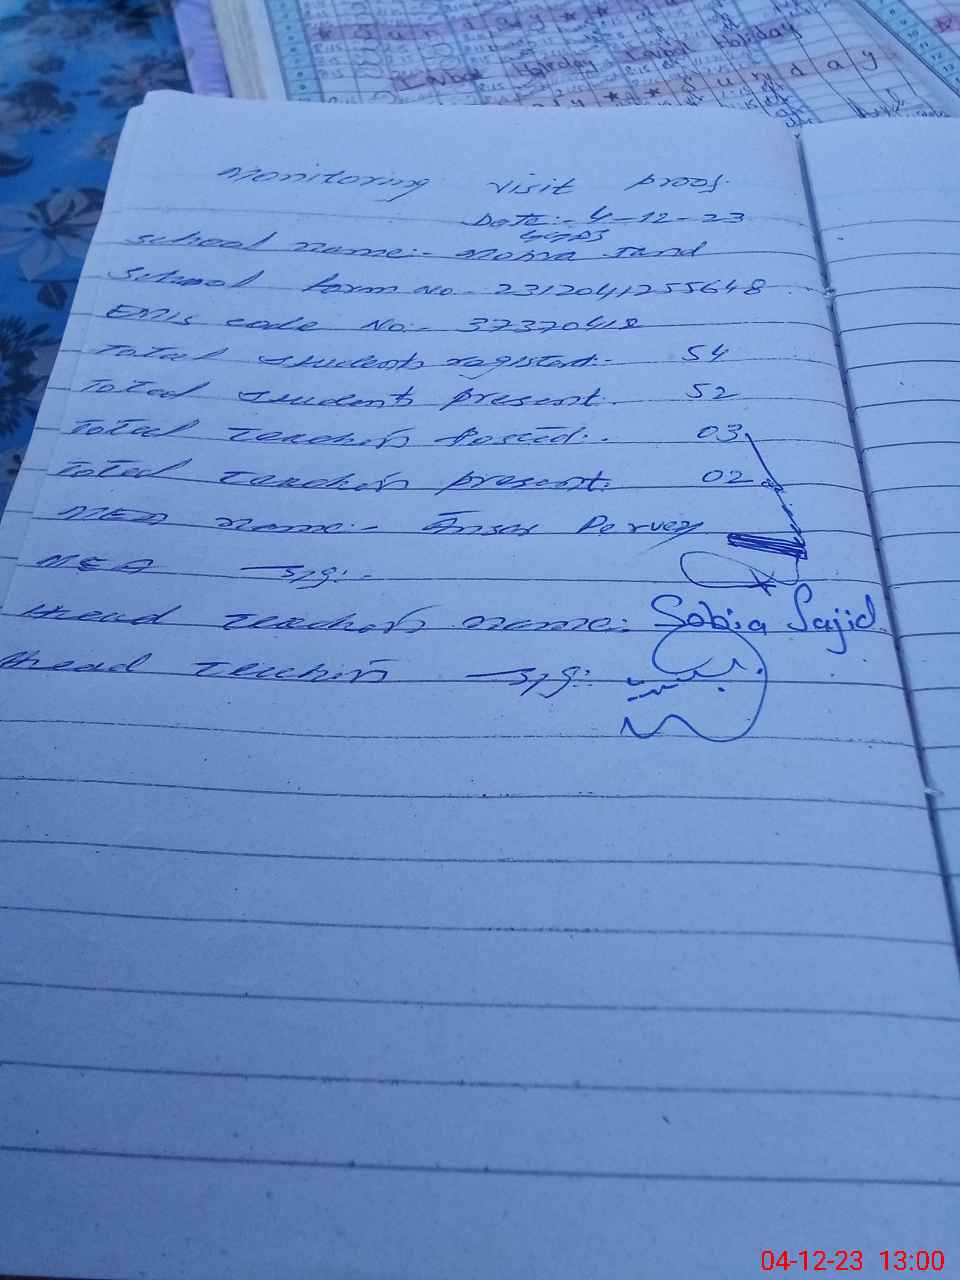 Labor Holiday
Labor Holiday
Sunday
Monitoring visit proof.
Date:- 4-12-23
GGPS
School name:- Mohra Jand
School form No- 2312041255648
EMIS code No:- 37370418
Total students registed:- 54
Total students present. 52
Total Teachers Posted:. 03
Total Teachers present: 02
MEA name:- Ansar Pervez
MEA Sig:-
Head Teachers name: Sobia Sajid
Head Teachers Sig:
04-12-23 13:00